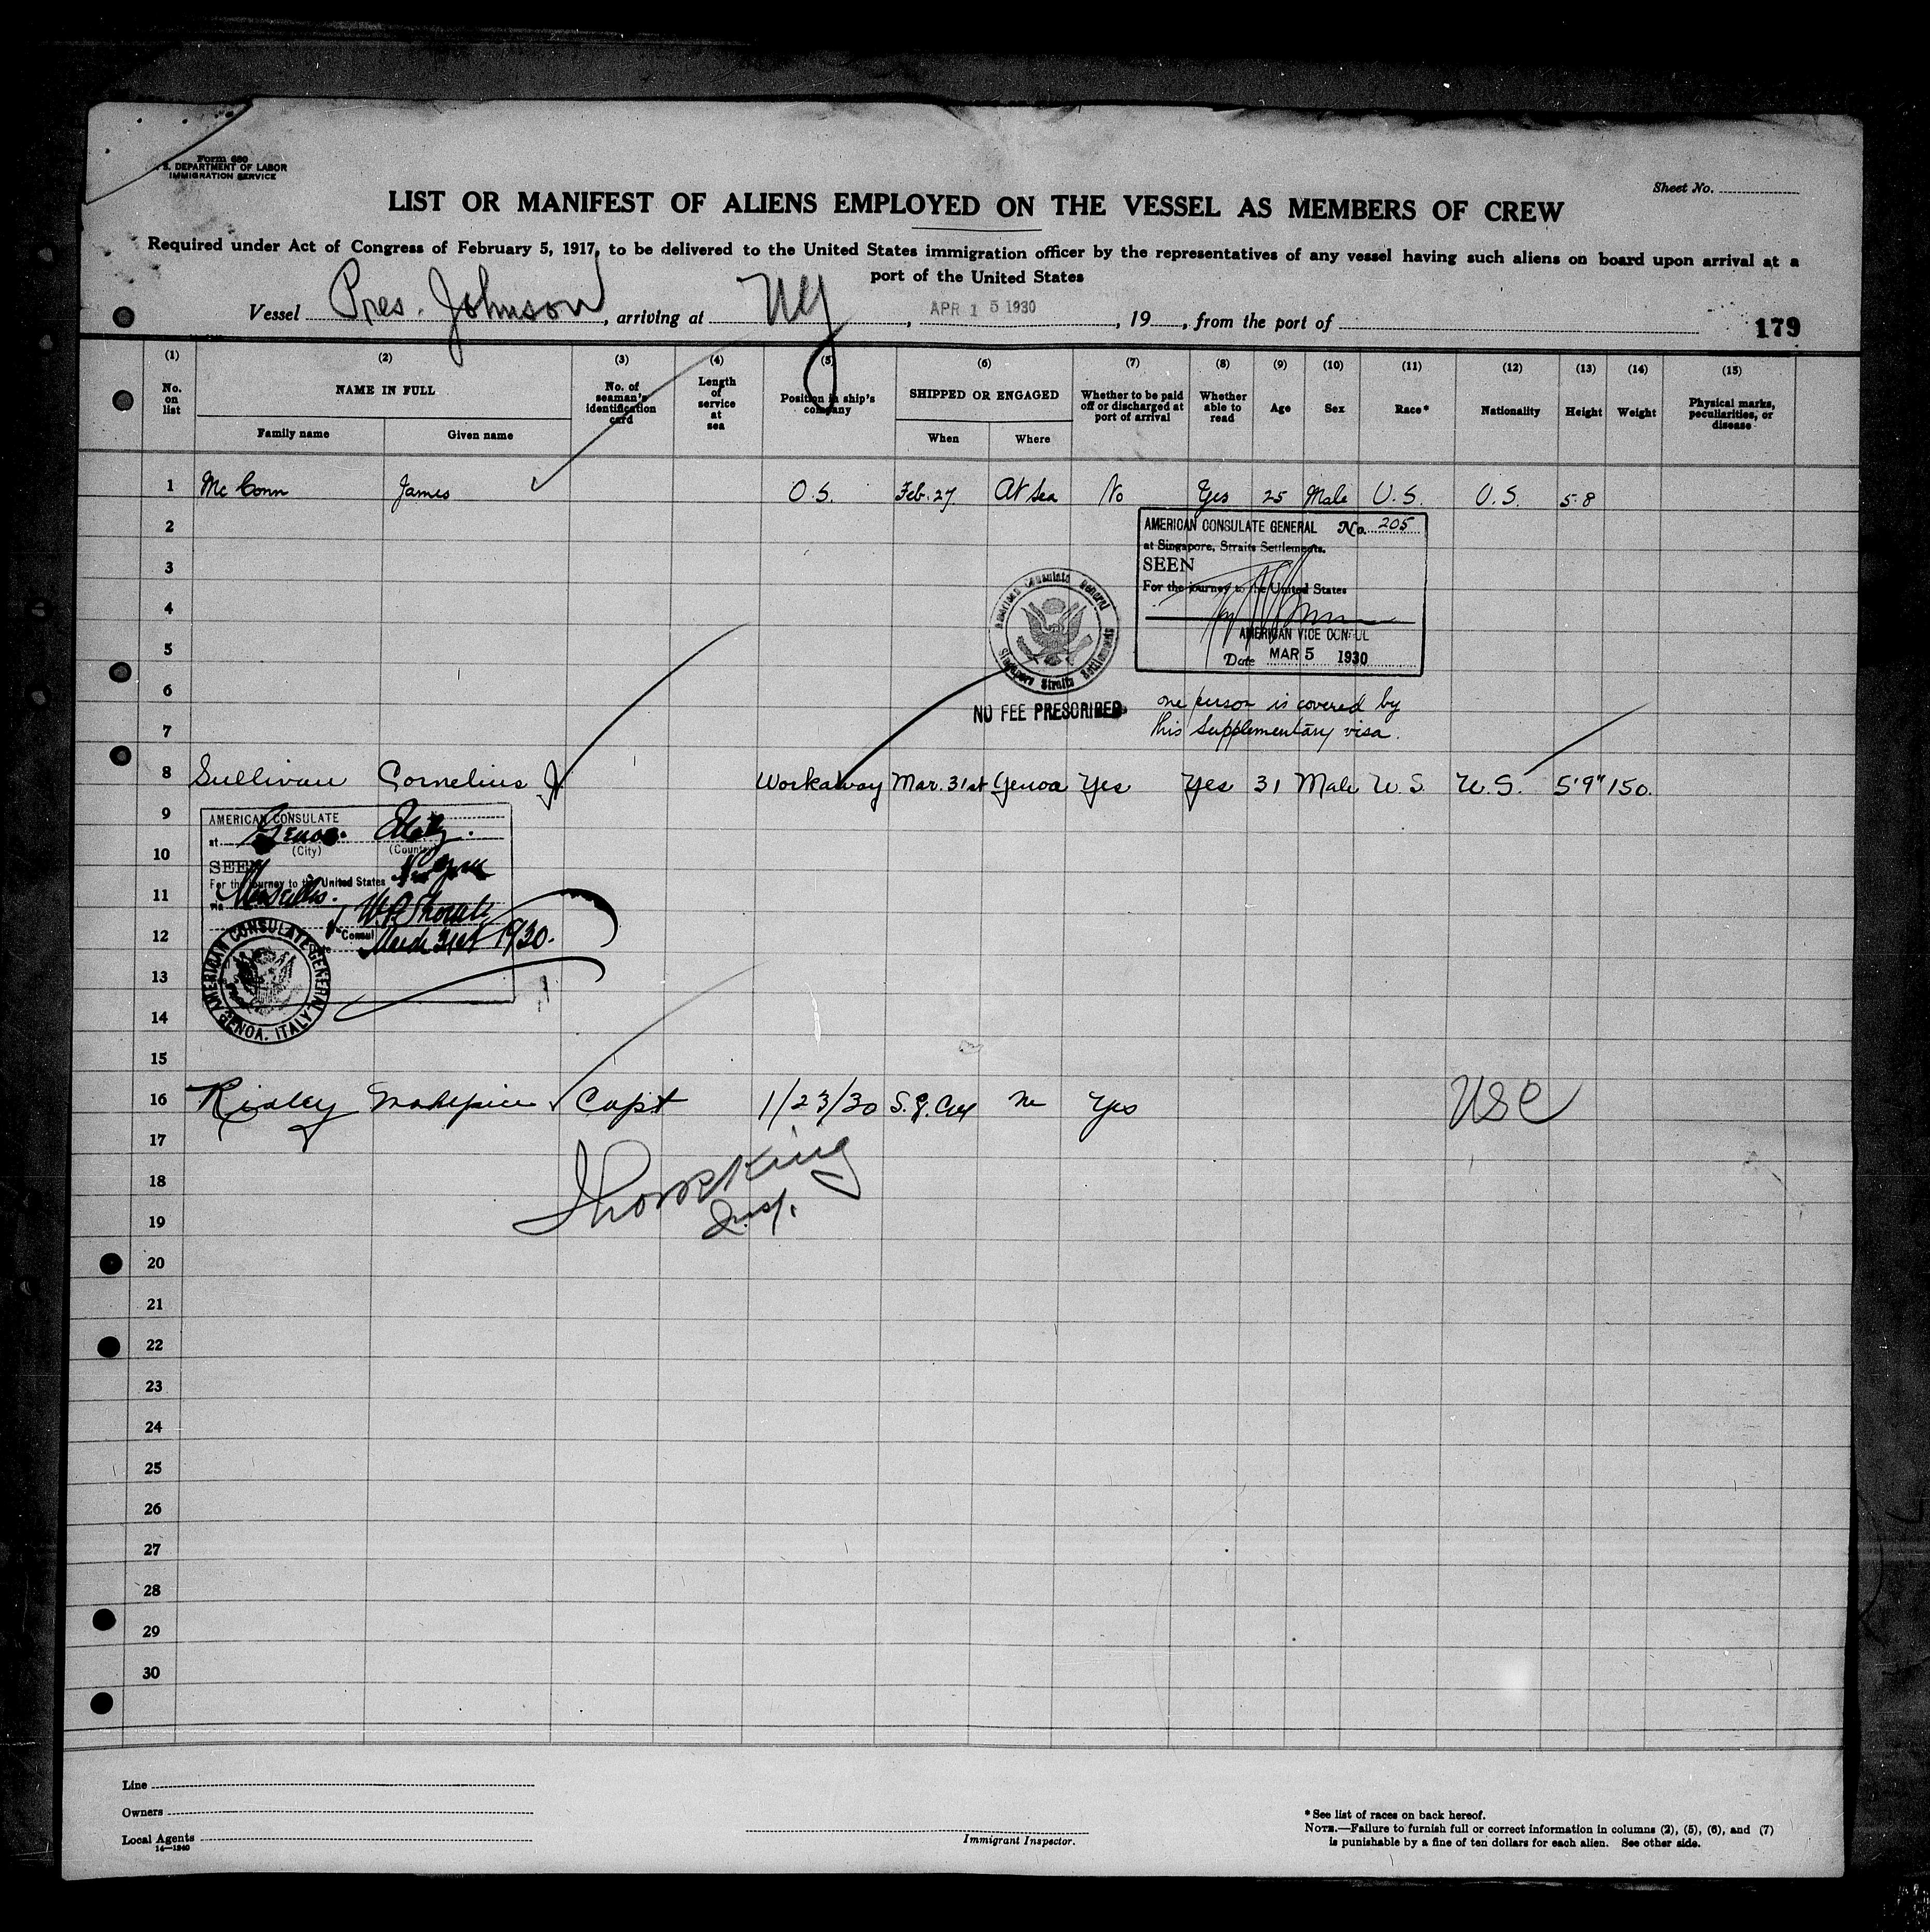 Form 680
U. S. DEPARTMENT OF LABOR
IMMIGRATION SERVICE
Sheet No.
LIST OR MANIFEST OF ALIENS EMPLOYED ON THE VESSEL AS MEMBERS OF CREW
Required under Act of Congress of February 5, 1917, to be delivered to the United States immigration officer by the representatives of any vessel having such aliens on board upon arrival at a
port of the United States
Vessel Pres. Johnson, arriving at NY, APR 15 1930, 19, from the port of
179
(1) (2) (3) (4) (5) (6) (7) (8) (9) (10) (11) (12) (13) (14) (15)
No. on list
NAME IN FULL
Family name
Given name
No. of seaman's identification card
Length of service at sea
Position in ship's company
SHIPPED OR ENGAGED
When
Where
Whether to be paid off or discharged at port of arrival
Whether able to read
Age
Sex
Race*
Nationality
Height
Weight
Physical marks, peculiarities, or disease
1 McConn James O.S. Feb. 27 At Sea No Yes 25 Male U.S. U.S. 5-8
2
AMERICAN CONSULATE GENERAL No. 205
at Singapore, Straits Settlements.
3
SEEN
For the journey to the United States
4
AMERICAN VICE CONSUL
5
Date MAR 5 1930
American Consulate General Singapore Straits Settlements
6
NO FEE PRESCRIBED
one person is covered by
7
this supplementary visa.
8 Sullivan Cornelius J. Workaway Mar. 31st Genoa Yes Yes 31 Male U.S. U.S. 5'9" 150.
9
AMERICAN CONSULATE
at Genoa. Italy.
(City) (Country)
10
SEEN
For the journey to the United States
11
via Marseilles.
12
Consul
March 31st 1930.
13
AMERICAN CONSULATE GENERAL
GENOA, ITALY
14
15
16 Ridley Capt 1/23/30 No Yes USC
17
18
19
Insp.
20
21
22
23
24
25
26
27
28
29
30
Line
Owners
Local Agents
14—1240
Immigrant Inspector.
*See list of races on back hereof.
NOTE.—Failure to furnish full or correct information in columns (2), (5), (6), and (7)
is punishable by a fine of ten dollars for each alien. See other side.